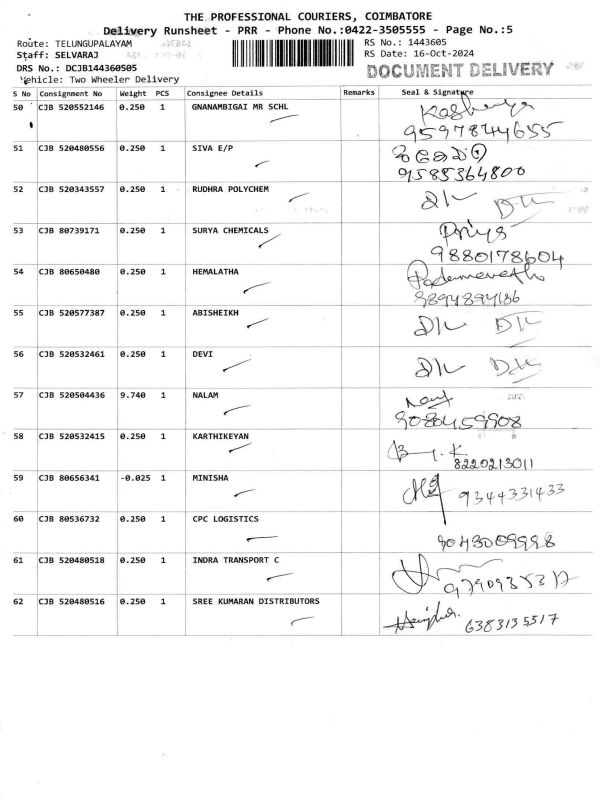 THE PROFESSIONAL COURIERS, COIMBATORE
Delivery Runsheet - PRR - Phone No.:0422-3505555 - Page No.:5
Route: TELUNGUPALAYAM RS No.: 1443605
Staff: SELVARAJ RS Date: 16-Oct-2024
DRS No.: DCJB144360505 DOCUMENT DELIVERY
Vehicle: Two Wheeler Delivery
S No Consignment No Weight PCS Consignee Details Remarks Seal & Signature
50 CJB 520552146 0.250 1 GNANAMBIGAI MR SCHL
9597844655
51 CJB 520480556 0.250 1 SIVA E/P
9585364800
52 CJB 520343557 0.250 1 RUDHRA POLYCHEM D/L
53 CJB 80739171 0.250 1 SURYA CHEMICALS Priya
9880178604
54 CJB 80650480 0.250 1 HEMALATHA
9894894136
55 CJB 520577387 0.250 1 ABISHEIKH D/L
56 CJB 520532461 0.250 1 DEVI D/L
57 CJB 520504436 9.740 1 NALAM
9080459908
58 CJB 520532415 0.250 1 KARTHIKEYAN
8220213011
59 CJB 80656341 -0.025 1 MINISHA 9344331433
60 CJB 80536732 0.250 1 CPC LOGISTICS
9043009998
61 CJB 520480518 0.250 1 INDRA TRANSPORT C
62 CJB 520480516 0.250 1 SREE KUMARAN DISTRIBUTORS 6383135517